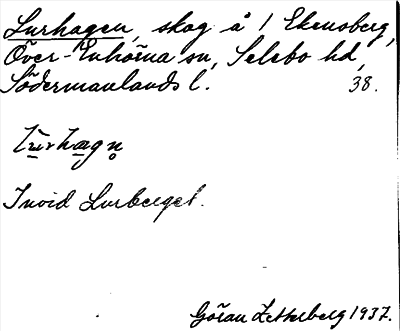 Lurhagen, skog å 1 Ekensberg,
Över-Enhörna sn, Selebo hd,
Södermanlands l. 38.
Lūrhagn̥
Invid Lurberget.
Göran Zetterberg 1937.